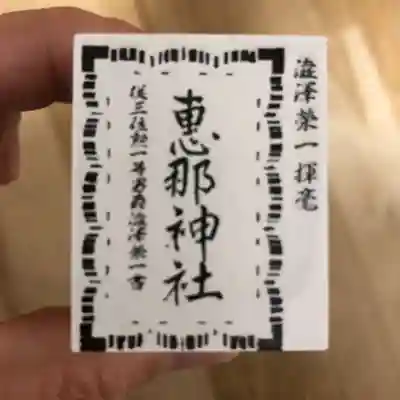 澁澤榮一揮毫
惠那神社
従三位勲一等男爵澁澤榮一書